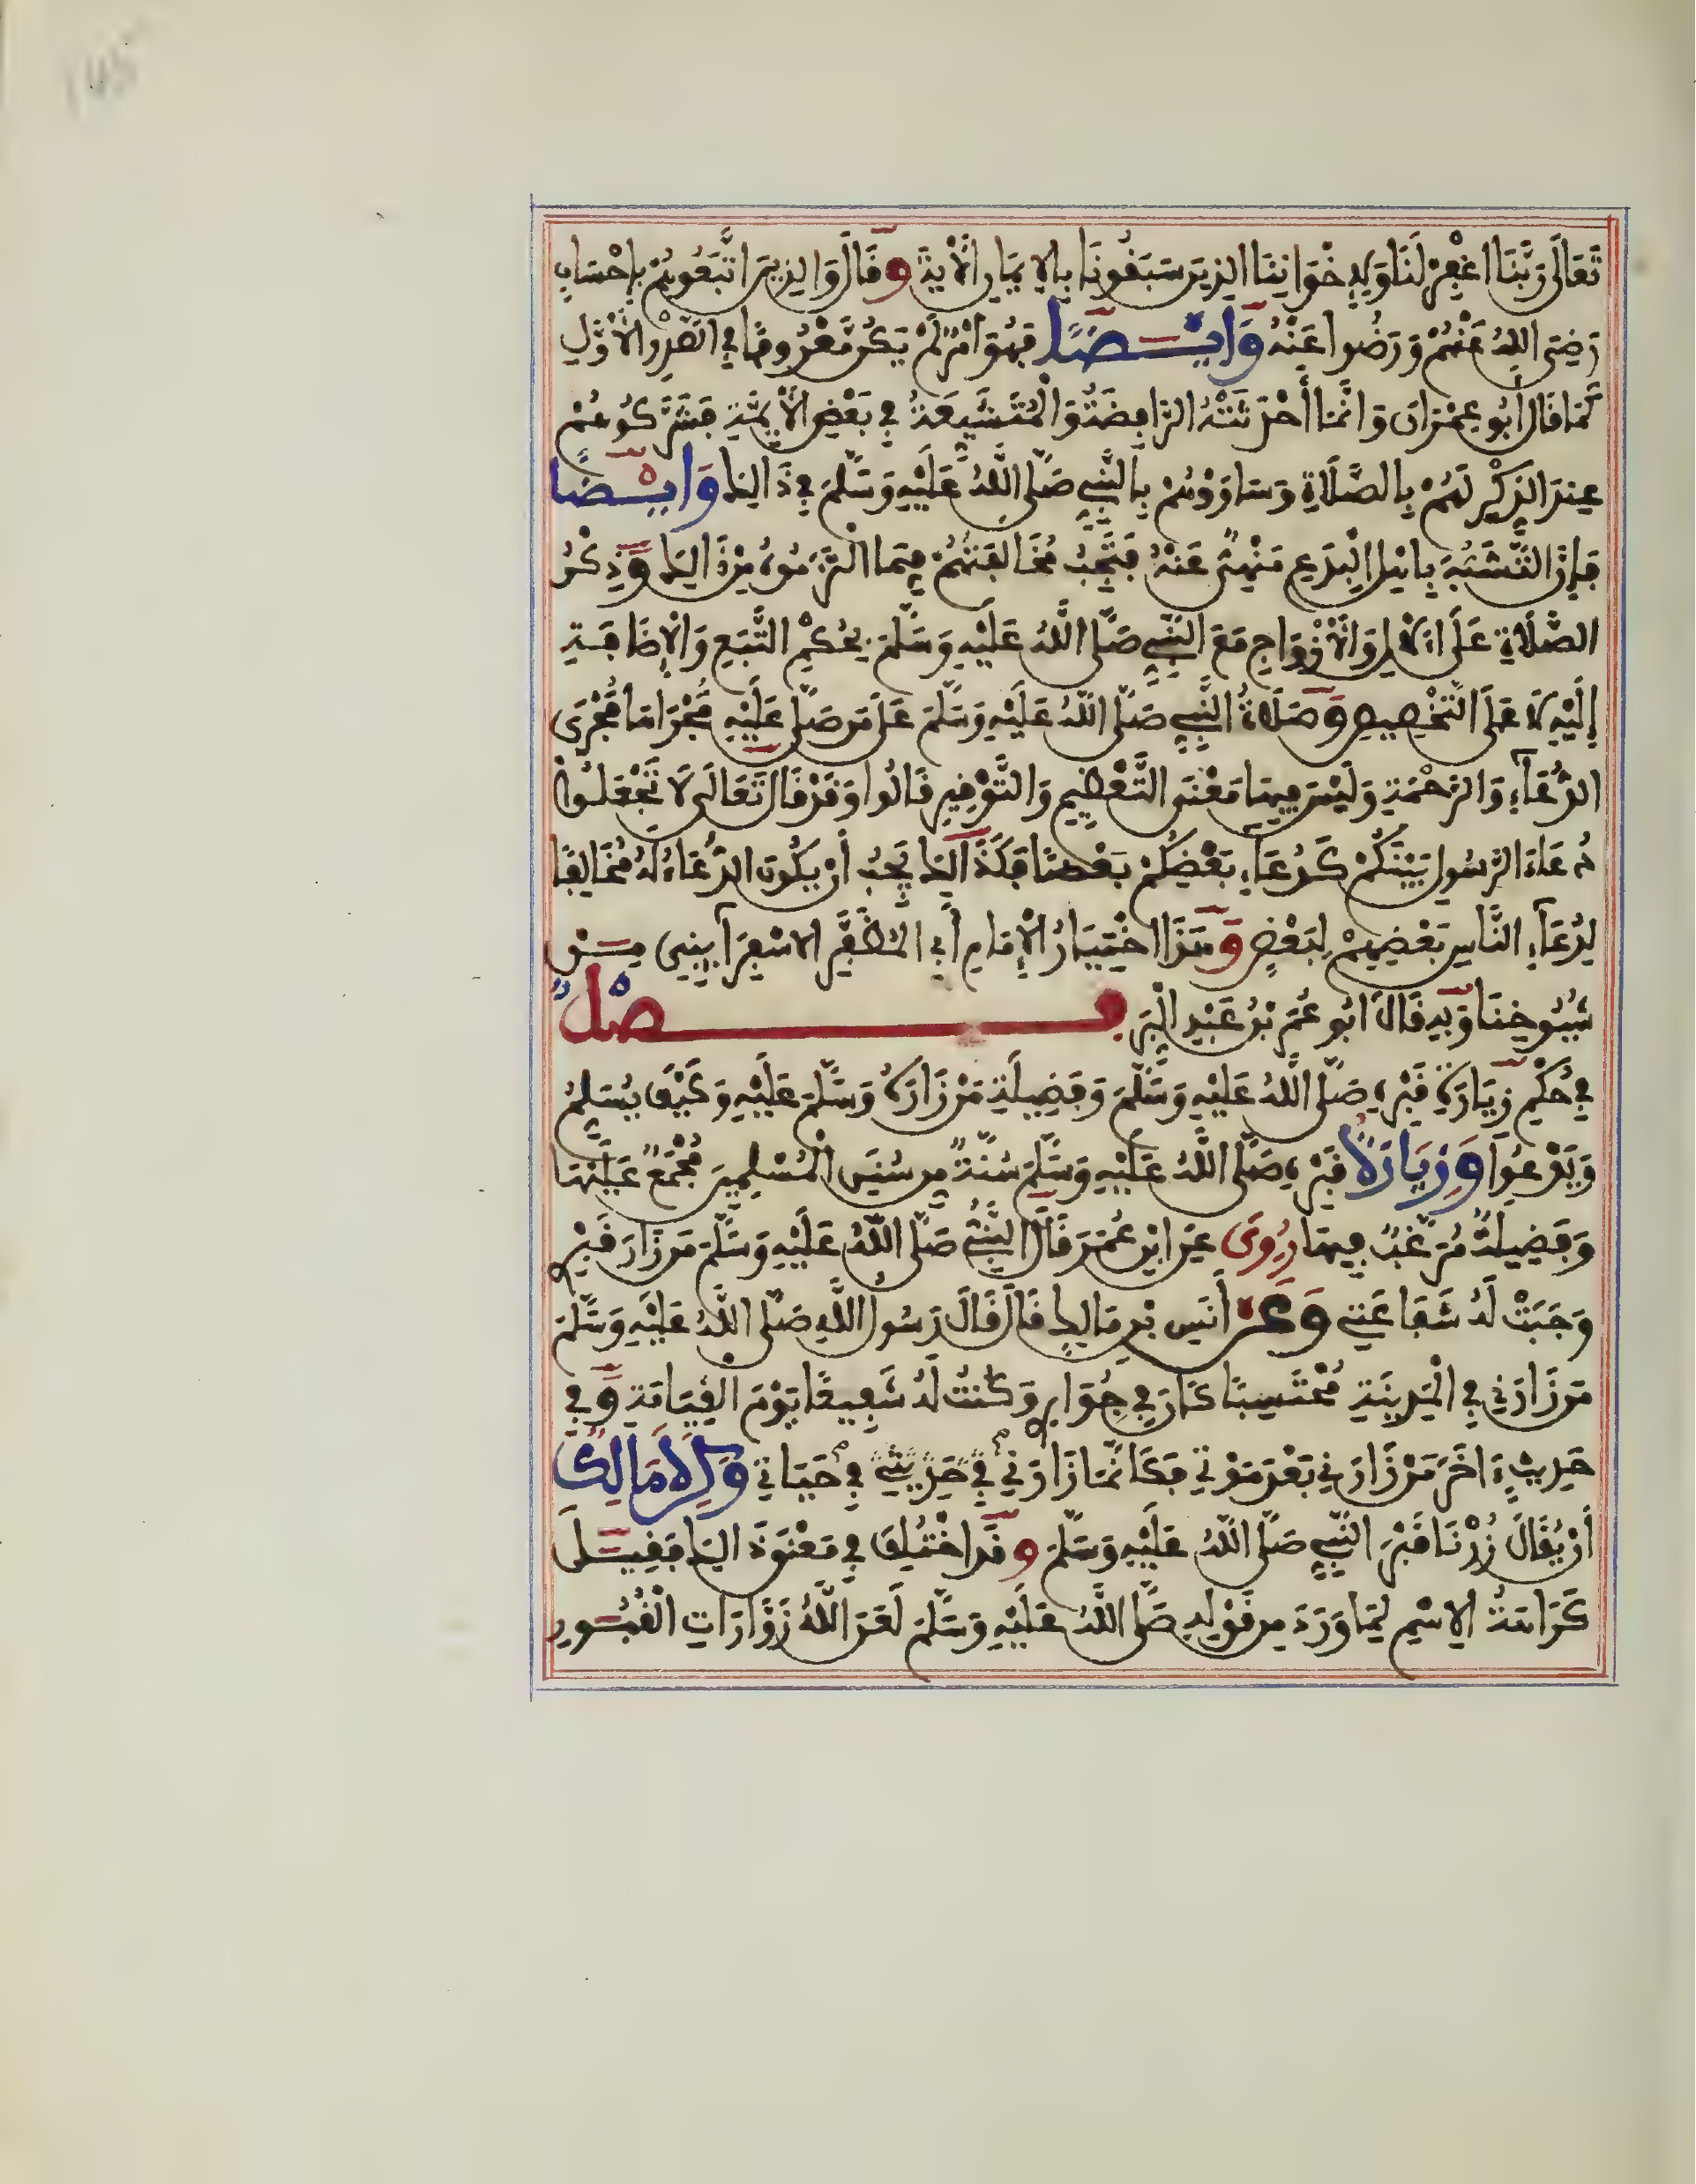 تَعَالَى رَبَّنَا اغْفِرْ لَنَا وَلِإِخْوَانِنَا الذِينَ سَبَقُونَا بِالِايمَانِ الْأَيَةَ وَقَالَ وَالذِينَ اتَّبَعُوهُمْ بِإِحْسَانٍ
رَضِيَ اللهُ عَنْهُمْ وَرَضُوا عَنْهُ وَأَيْضًا فَهُوَ أَمْرٌ لَمْ يَكُنْ مَّعْرُوفًا فِي الصَّدْرِ الْأَوَّلِ
كَمَا قَالَ أَبُو عِمْرَانَ وَإنَّمَا أَحْدَثَتْهُ الرَّافِضَةُ وَالْمُتَشَيِّعَةُ فِي بَعْضِ الْأَيِمَّةِ فَشَرَّكُوهُمْ
عِنْدَ الذِّكْرِ لَهُمْ بِالصَّلَاةِ وَسَاوَوْهُمْ بِالنَّبِيِّ صَلَّى اللَّهُ عَلَيْهِ وَسَلَّمَ فِي ذَالِكَ وَأَيْضًا
فَإِنَّ التَّشَبُّهَ بِأَهْلِ الْبِدَعِ مَنْهِيٌّ عَنْهُ فَتَجِبُ مُخَالَفَتُهُمْ فِيمَا الْتَزَمُوهُ مِنْ ذَالِكَ وَذِكْرُ
الصَّلَاةِ عَلَى الْآلِ وَالْأَزْوَاجِ مَعَ النَّبِيِّ صَلَّى اللَّهُ عَلَيْهِ وَسَلَّمَ بِحُكْمِ التَّبَعِ وَالْإِضَافَةِ
إِلَيْهِ لَا عَلَى التَّخْصِيصِ وَصَلَاةُ النَّبِيِّ صَلَّى اللَّهُ عَلَيْهِ وَسَلَّمَ عَلَى مَن صَلَّى عَلَيْهِ مَجْرَاهَا مَجْرَى
الدُّعَآءِ وَالرَّحْمَةِ وَلَيْسَ فِيهَا مَعْنَى التَّعْظِيمِ وَالتَّوْقِيرِ قَالُوا وَقَدْ قَالَ تَعَالَى لَا تَجْعَلُوا
دُعَاءَ الرَّسُولِ بَيْنَكُمْ كَدُعَآءِ بَعْضِكُمْ بَعْضًا فَكَذَالِكَ يَجِبُ أَنْ يَكُونَ الدُّعَاءُ لَهُ مُخَالِفًا
لِدُعَآءِ النَّاسِ بَعْضِهِمْ لِبَعْضٍ وَهَذَا اخْتِيَارُ الْإِمَامِ أَبِي الْمُظَفَّرِ الاسْفِرَآيِينِي مِنْ
شُيُوخِنَا وَبِهِ قَالَ أَبُو عُمَرَ بْنُ عَبْدِ الْبَرِّ فَصْلٌ
فِي حُكْمِ زِيَارَةِ قَبْرِهِ صَلَّى اللَّهُ عَلَيْهِ وَسَلَّمَ وَفَضِيلَةِ مَنْ زَارَهُ وَسَلَّمَ عَلَيْهِ وَكَيْفَ يُسَلِّمُ
وَيَدْعُوا وَزِيَارَةُ قَبْرِهِ صَلَّى اللَّهُ عَلَيْهِ وَسَلَّمَ سُنَّةٌ مِن سُنَنِ الْمُسْلِمِينَ مُجْمَعٌ عَلَيْهَا
وَفَضِيلَةٌ مُرَغَّبٌ فِيهَا رُوِىَ عَنِ ابْنِ عُمَرَ قَالَ النَّبِيُّ صَلَّى اللَّهُ عَلَيْهِ وَسَلَّمَ مَن زَارَ قَبْرِي
وَجَبَتْ لَهُ شَفَاعَتِي وَعَنْ أَنَسِ بْنِ مَالِكٍ قَالَ قَالَ رَسُولُ اللَّهِ صَلَّى اللَّهُ عَلَيْهِ وَسَلَّمَ
مَن زَارَنِي فِي الْمَدِينَةِ مُحْتَسِبًا كَانَ فِي جِوَارِي وَكُنْتُ لَهُ شَفِيعًا يَوْمَ الْقِيَامَةِ وَفِي
حَدِيثٍ ءَاخَرَ مَنْ زَارَنِي بَعْدَ مَوْتِي فَكَأَنَّمَا زَارَنِي فِي حَيَاتِي وَكَرِهَ مَالِكٌ
أَنْ يُقَالَ زُرْنَا قَبْرَ النَّبِيِّ صَلَّى اللَّهُ عَلَيْهِ وَسَلَّمَ وَقَدِ اخْتُلِفَ فِي مَعْنَى ذَالِكَ فَقِيلَ
كَرَاهَةُ الِاسْمِ لِمَا وَرَدَ مِن قَوْلِهِ صَلَّى اللَّهُ عَلَيْهِ وَسَلَّمَ لَعَنَ اللَّهُ زَوَّارَاتِ الْقُبُورِ